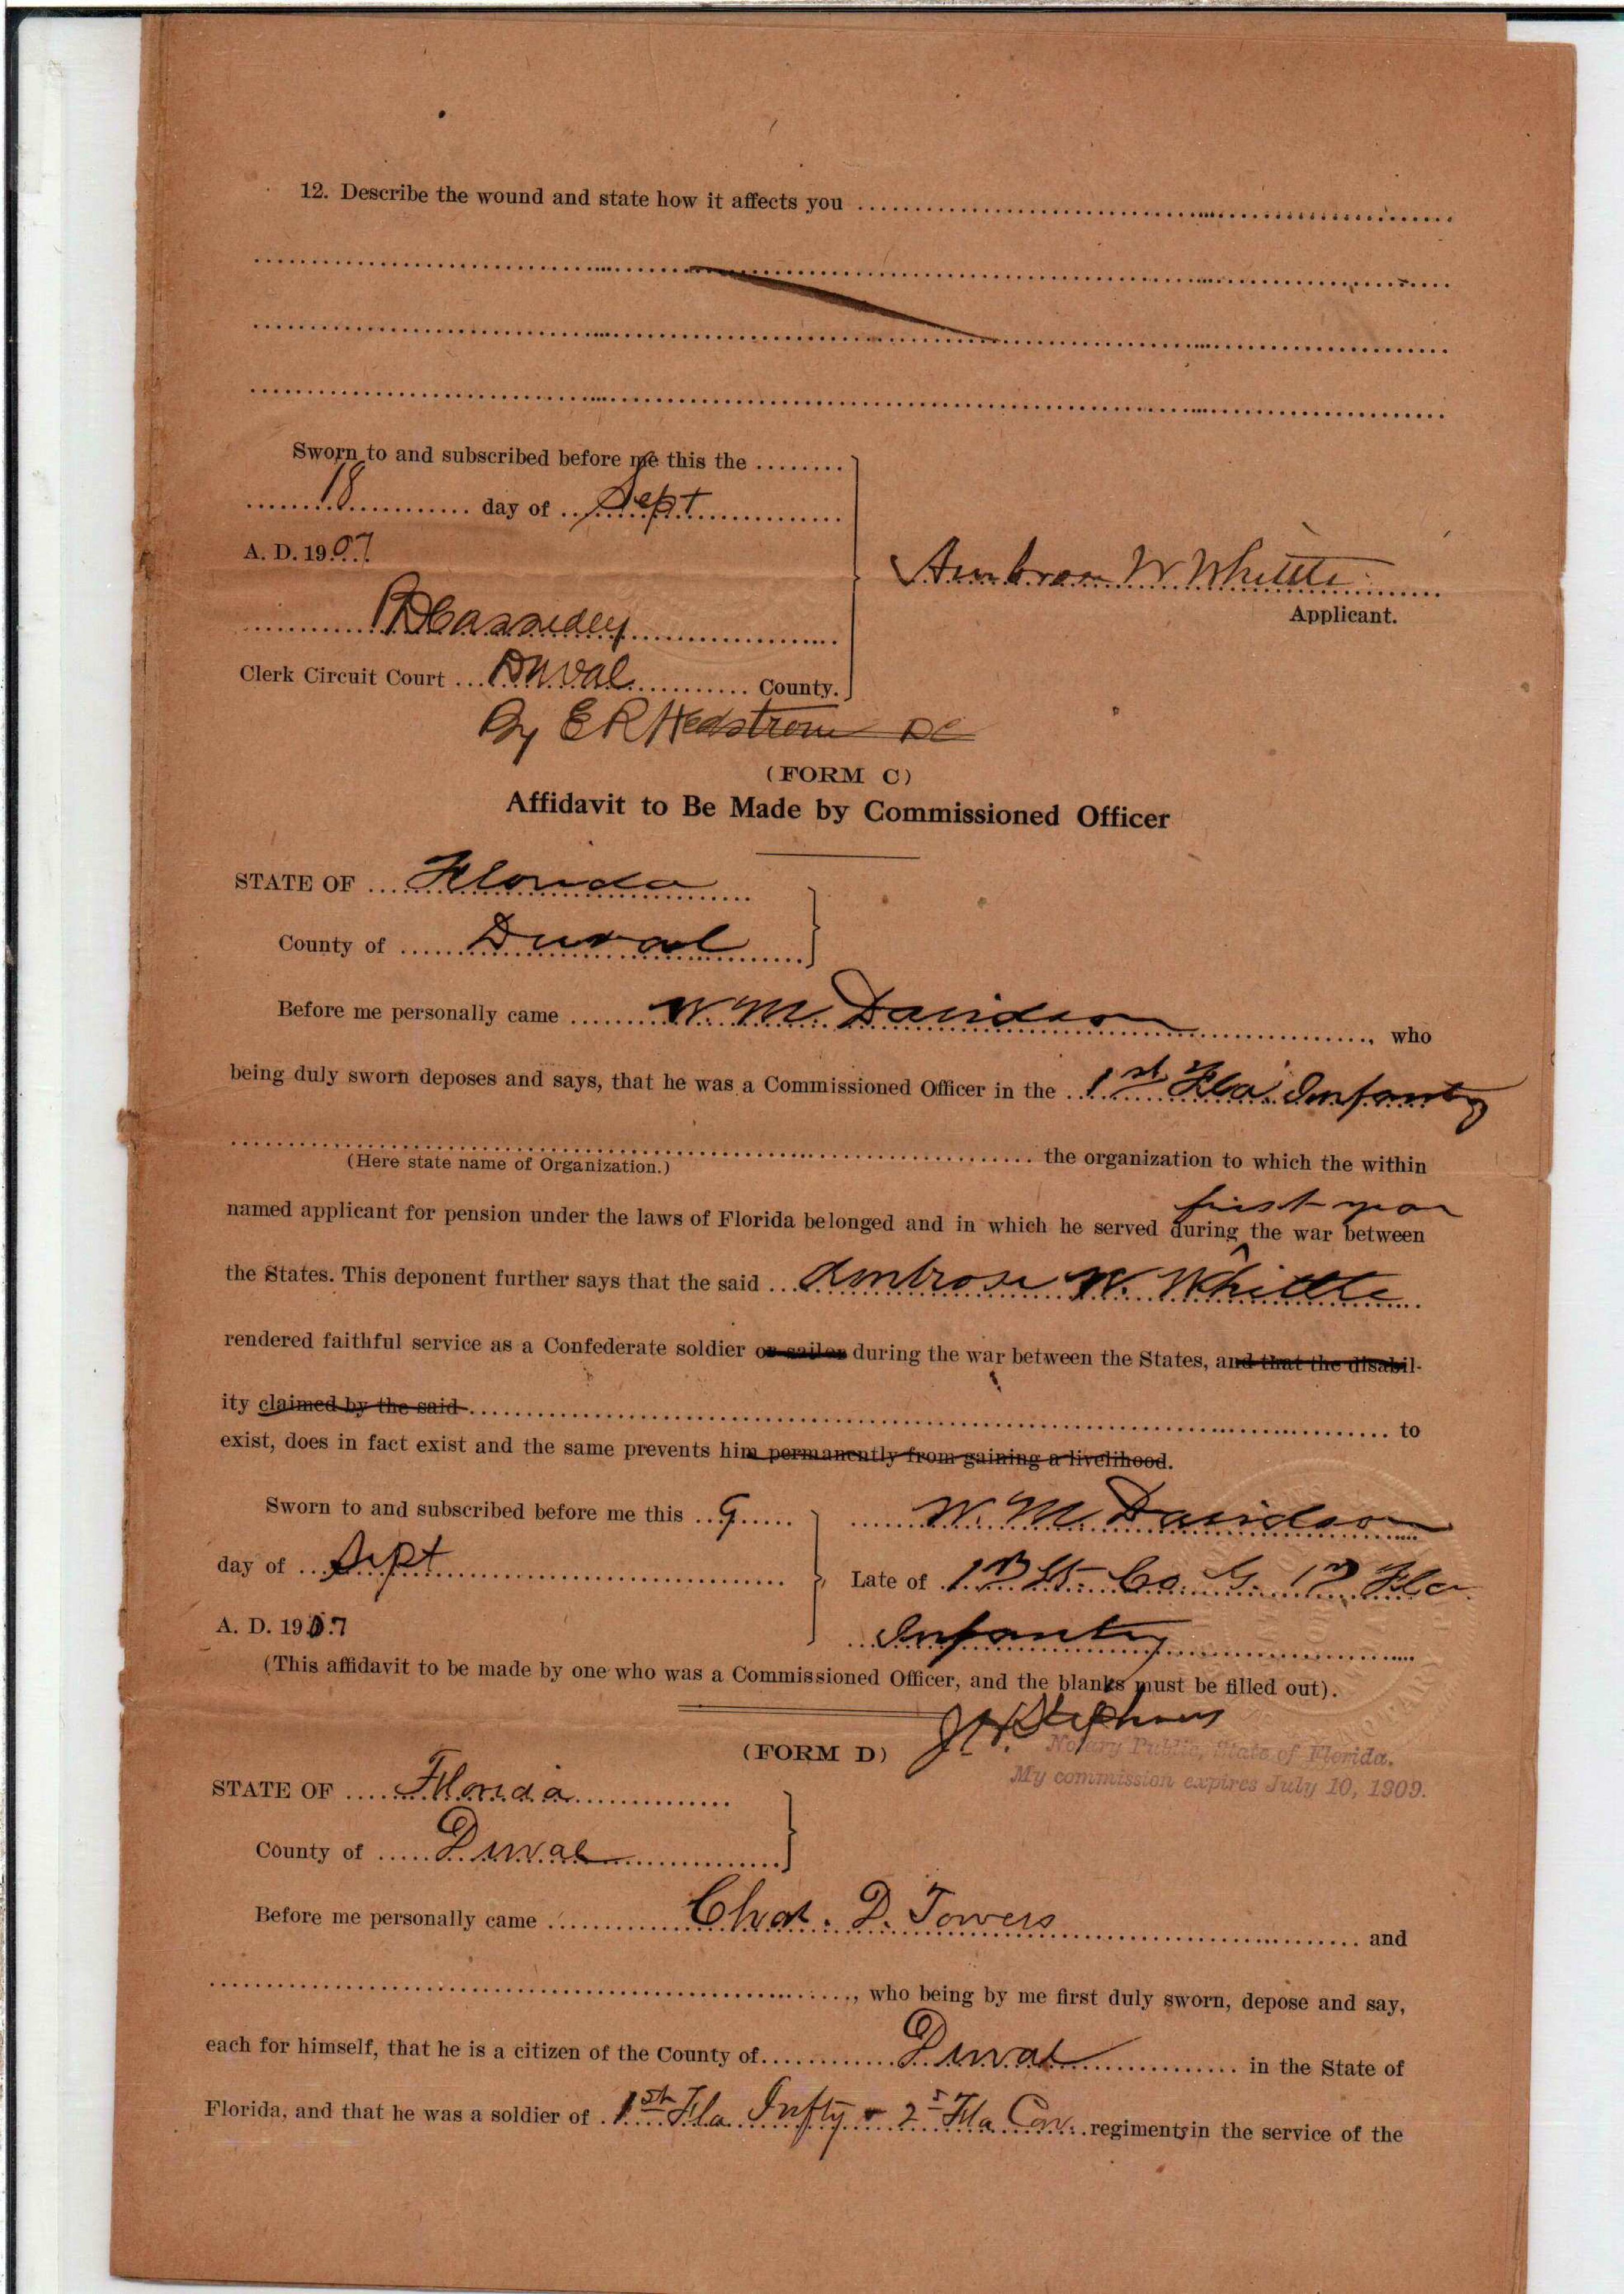 12. Describe the wound and state how it affects you
Sworn to and subscribed before me this the
18 day of Sept
A. D. 1907
Cassidey
Clerk Circuit Court Duval County.
Ambrose W. Whittle
Applicant.
By E R Hedstrom DC
(FORM C)
Affidavit to Be Made by Commissioned Officer
STATE OF Florida
County of Duval
Before me personally came W. M. Davidson, who
being duly sworn deposes and says, that he was a Commissioned Officer in the 1st Fla. Infantry
the organization to which the within
(Here state name of Organization.)
first year
named applicant for pension under the laws of Florida belonged and in which he served during the war between
the States. This deponent further says that the said Ambrose W. Whittle
rendered faithful service as a Confederate soldier or sailor during the war between the States, and that the disabil-
ity claimed by the said to
exist, does in fact exist and the same prevents him permanently from gaining a livelihood.
Sworn to and subscribed before me this 9
day of Sept
A. D. 1907
W. M. Davidson
Late of 1st Lt. Co. G. 1st Fla
Infantry
(This affidavit to be made by one who was a Commissioned Officer, and the blanks must be filled out).
Stephens
Notary Public, State of Florida.
My commission expires July 10, 1909.
(FORM D)
STATE OF Florida
County of Duval
Before me personally came Chas. D. Towers and
, who being by me first duly sworn, depose and say,
each for himself, that he is a citizen of the County of Duval in the State of
Florida, and that he was a soldier of 1st Fla Infty & 2d Fla Cav. regiments in the service of the